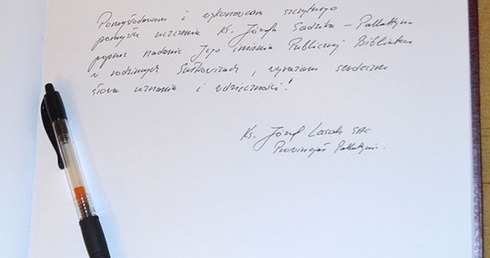 Pomysłodawcom i wykonawcom szczytnego
pomysłu uczczenia Ks. Józefa Sadzika – Pallotyna
poprzez nadanie Jego imienia Publicznej Bibliotece
w rodzinnych Sułkowicach, wyrażam serdeczne
słowa uznania i wdzięczności!
Ks. Józef Lasak SAC
Prowincjał Pallotynów